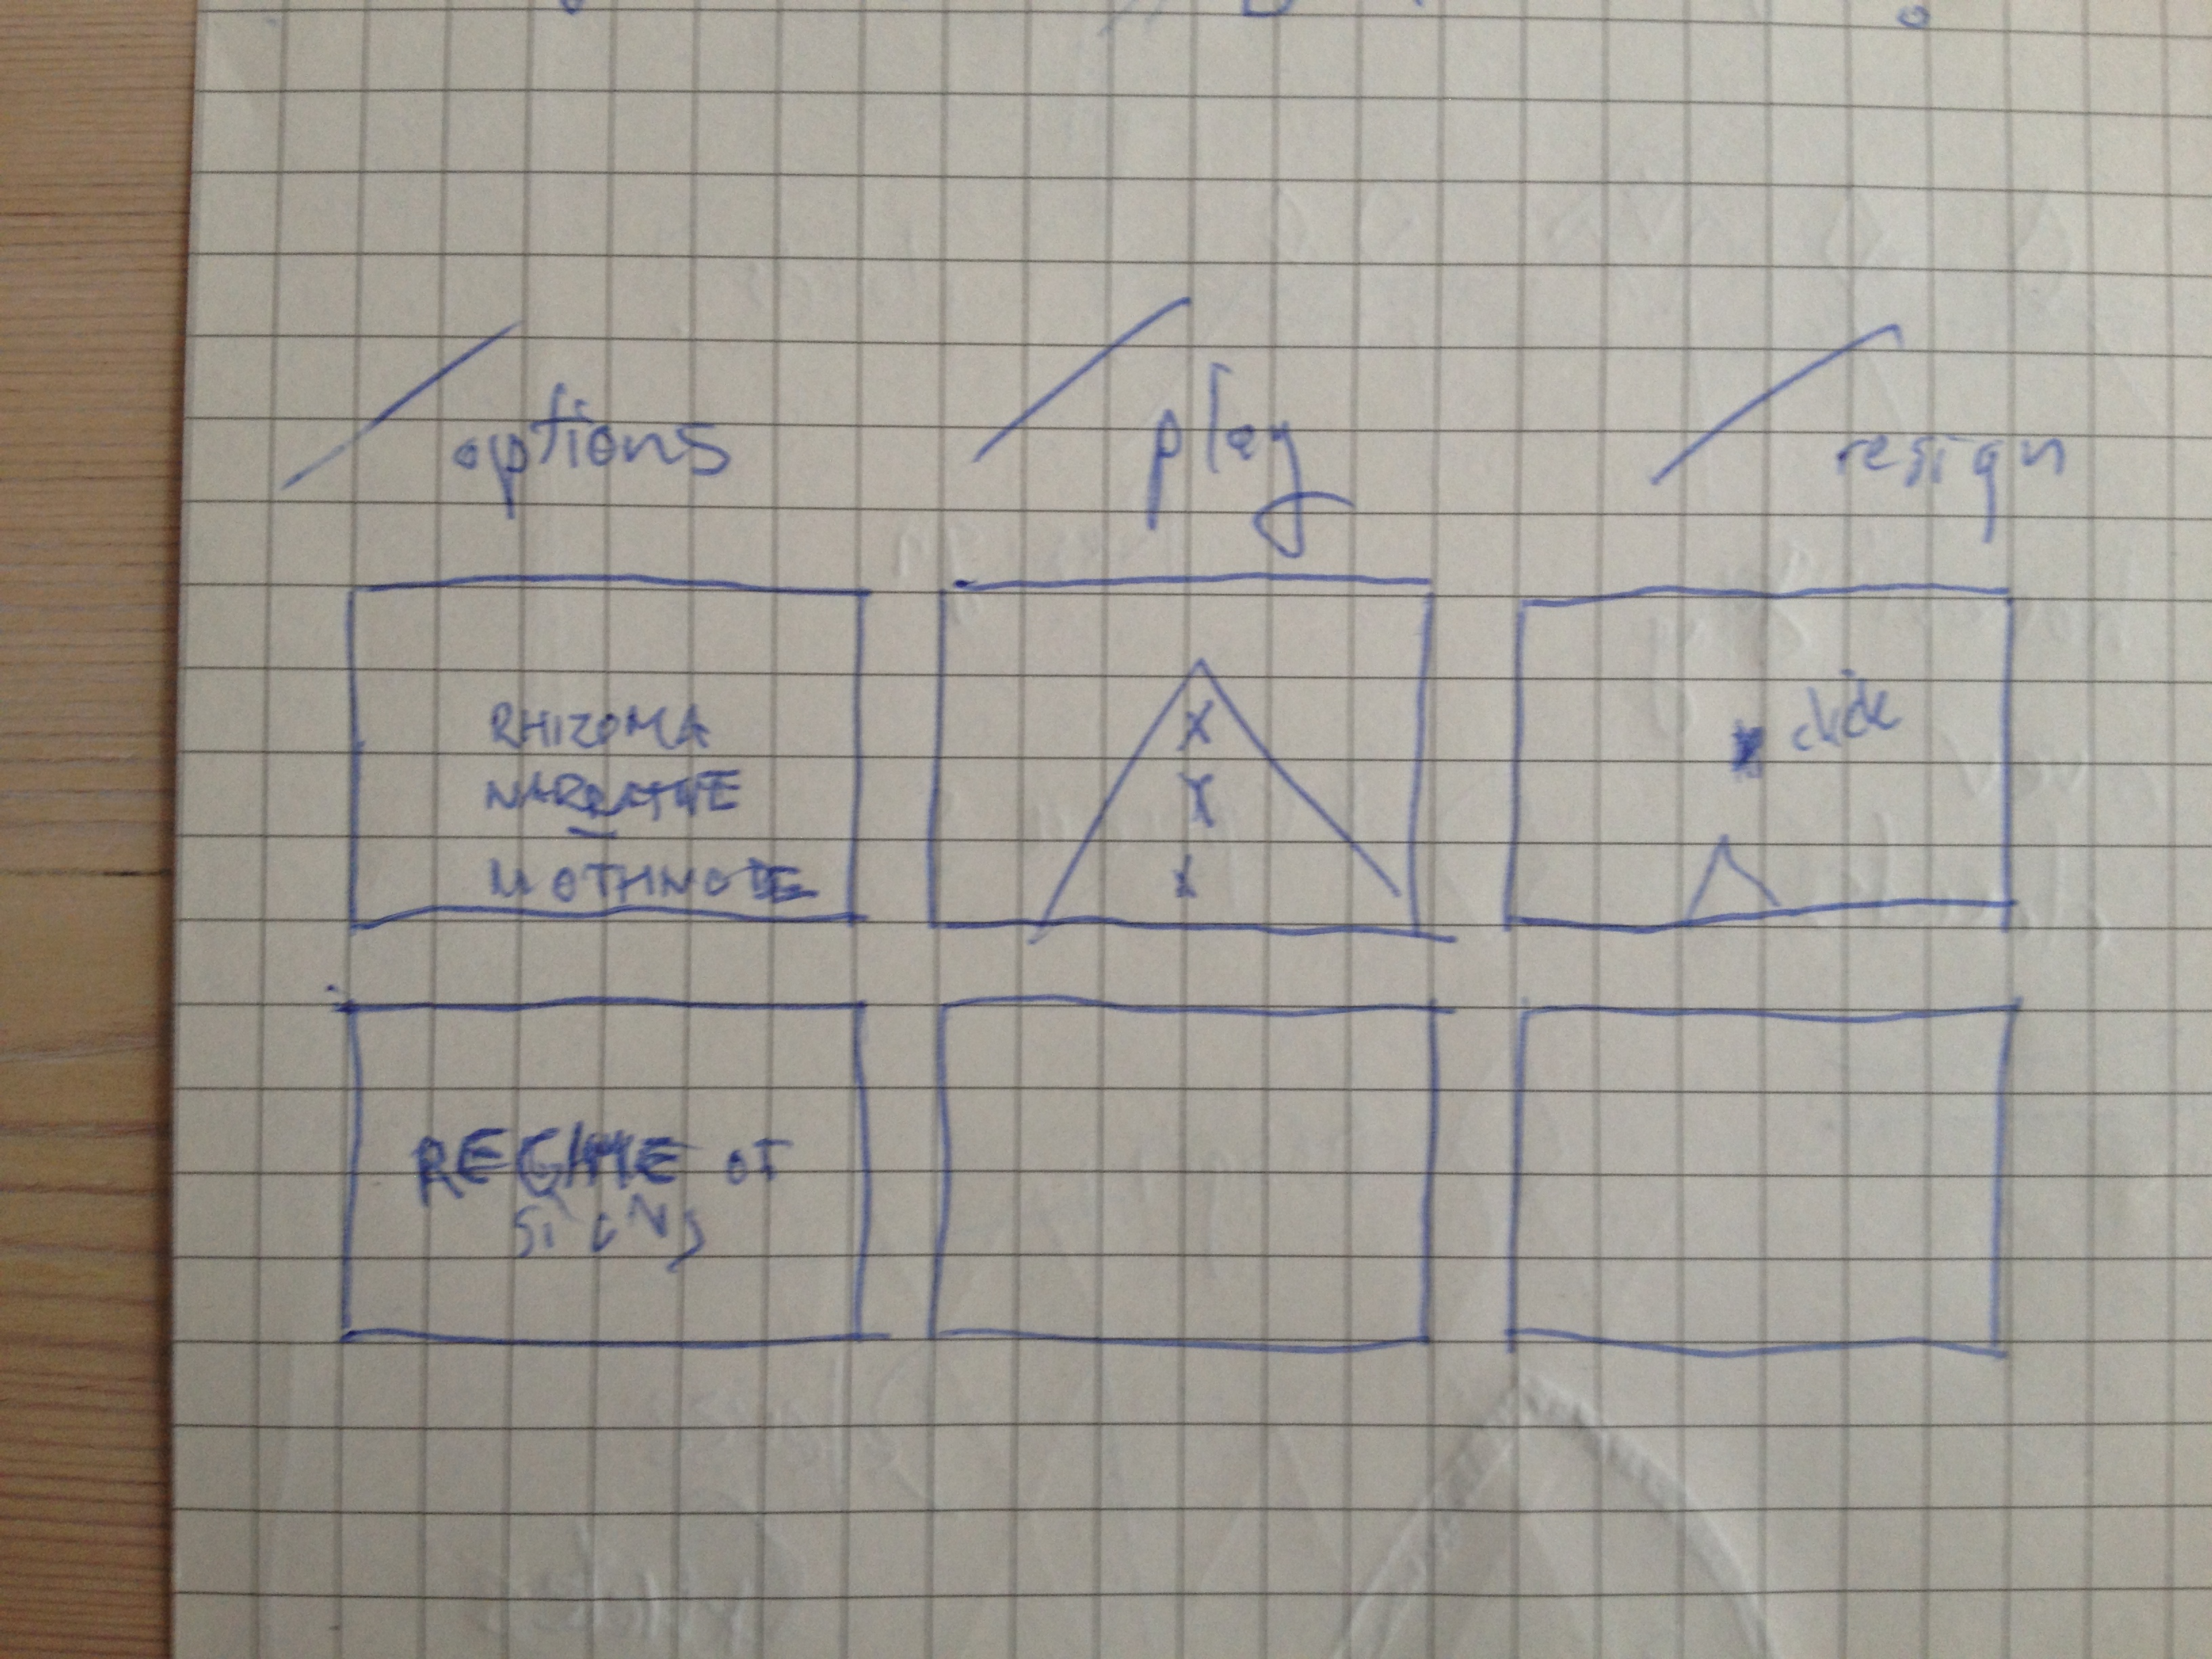 options
play
resign
RHIZOMA
NARRATIVE
MOTHNODE
X
X
X
click
REGIME OF
SIGNS